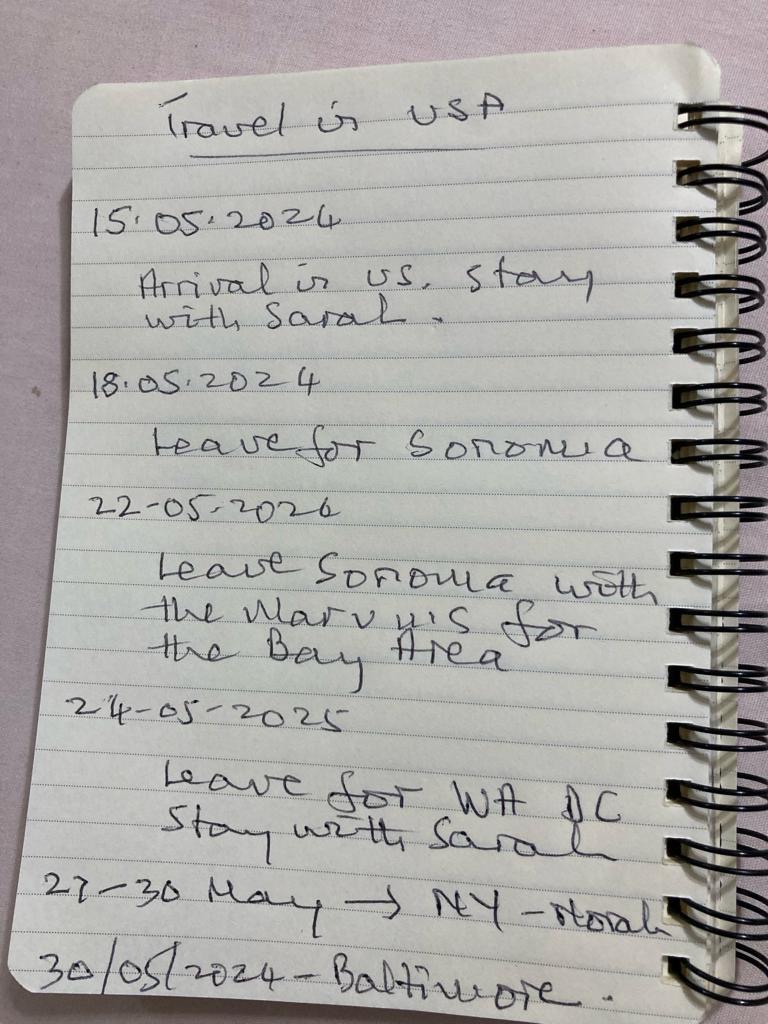 Travel in USA
15.05.2024
Arrival in US. Stay
with Sarah.
18.05.2024
Leave for Sonoma
22-05-2024
Leave Sonoma with
the for
the Bay Area
24-05-2025
Leave for WA DC
Stay with Sarah
27-30 May → NY - Norah
30/05/2024 - Baltimore.